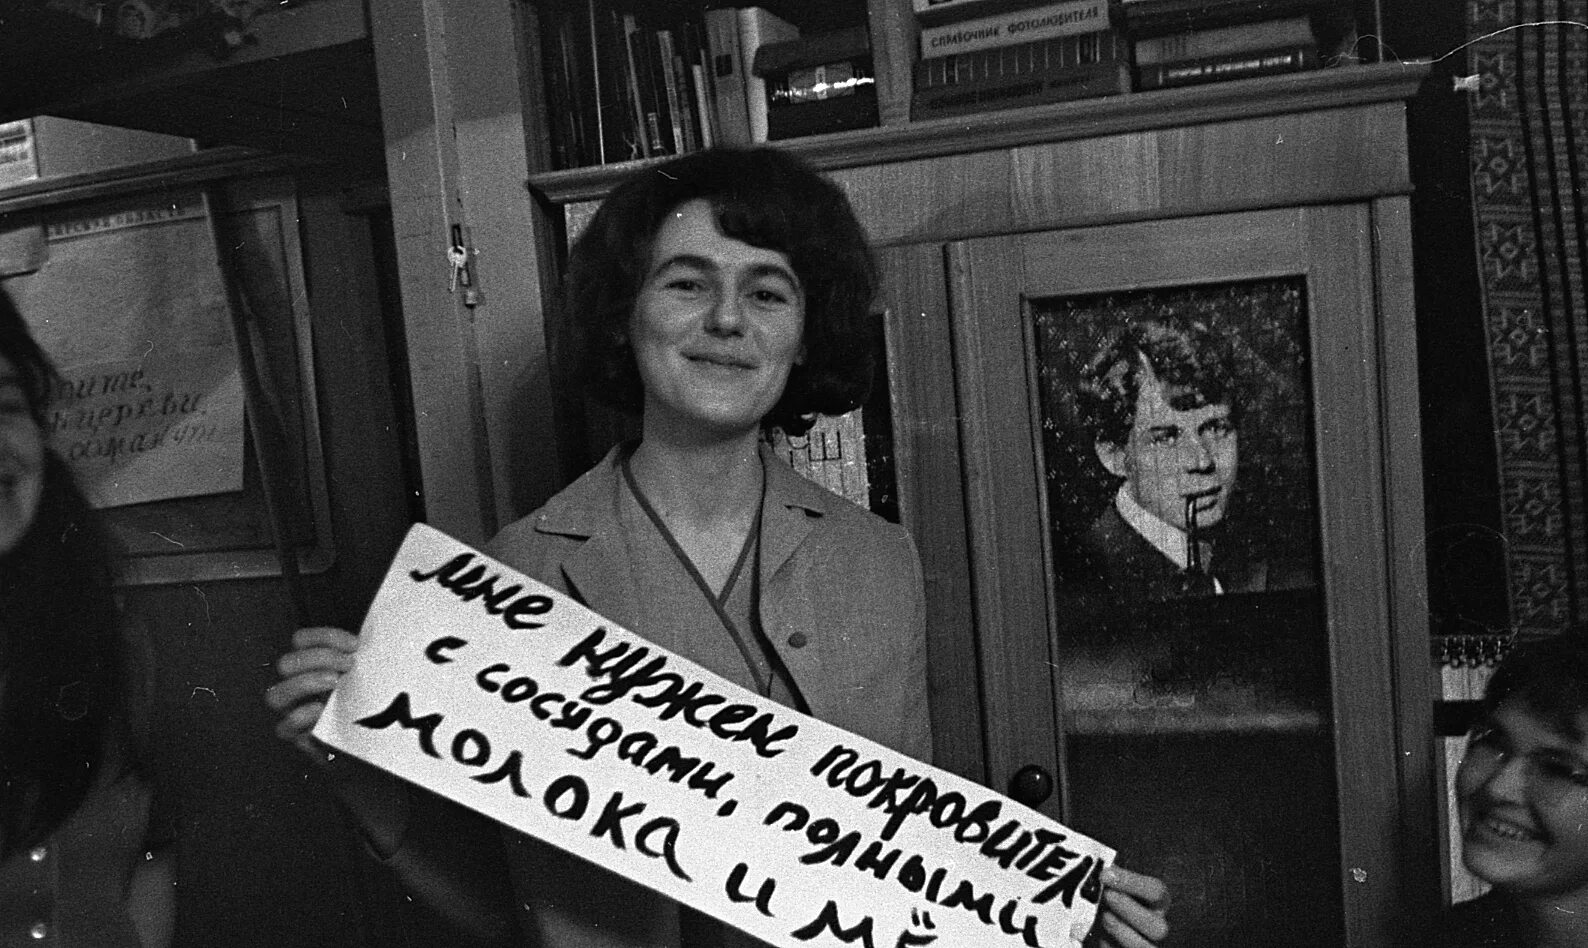 СПРАВОЧНИК ФОТОЛЮБИТЕЛЯ
церкви,
обмакут
мне нужен покровитель
с сосудами, полными
молока и мё